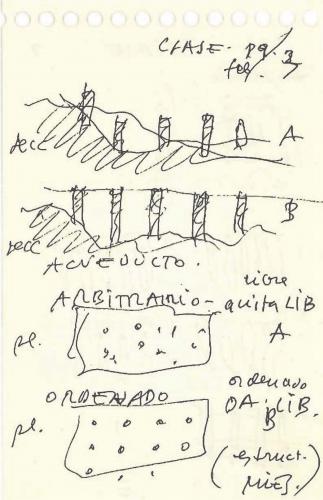 CLASE. pg. 3
A
secc
B
secc
ACUEDUCTO.
ARBITRARIO - quita LIB
A
pl.
ORDENADO
ordenado
DA LIB.
B
pl.
(estruct.